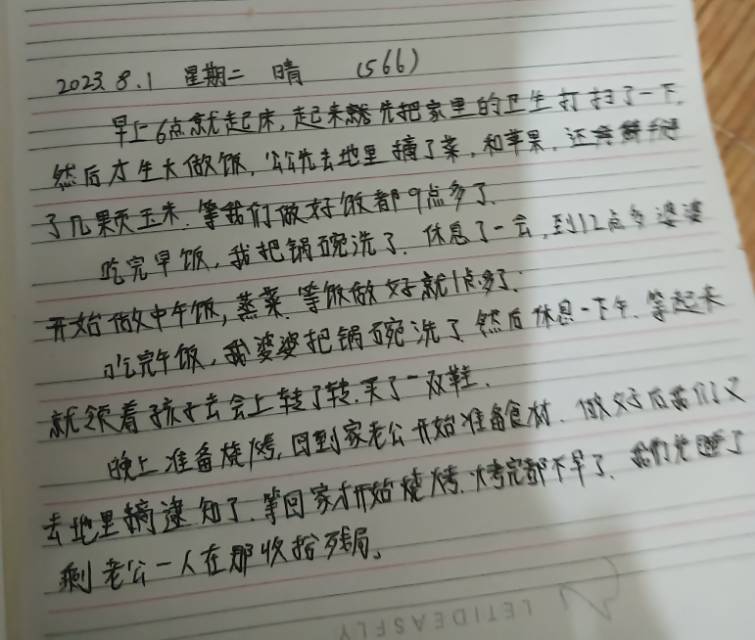 2023.8.1 星期二 晴 (566)
早上6点就起床,起来就先把家里的卫生打扫了一下,
然后才生火做饭,公公先去地里摘了菜,和苹果,还
了几颗玉米.等我们做好饭都9点多了.
吃完早饭,我把锅碗洗了.休息了一会,到12点多婆婆
开始做中午饭,蒸菜.等饭做好就1点多了.
吃完午饭,我婆婆把锅碗洗了然后休息一下午.等起来
就领着孩子去会上转了转.买了一双鞋.
晚上准备烧烤,回到家老公开始准备食材.做好后我们又
去地里摘逮知了.等回家才开始烧烤.烤完都不早了.我们先睡了
剩老公一人在那收拾残局。
LETIDEASFLY